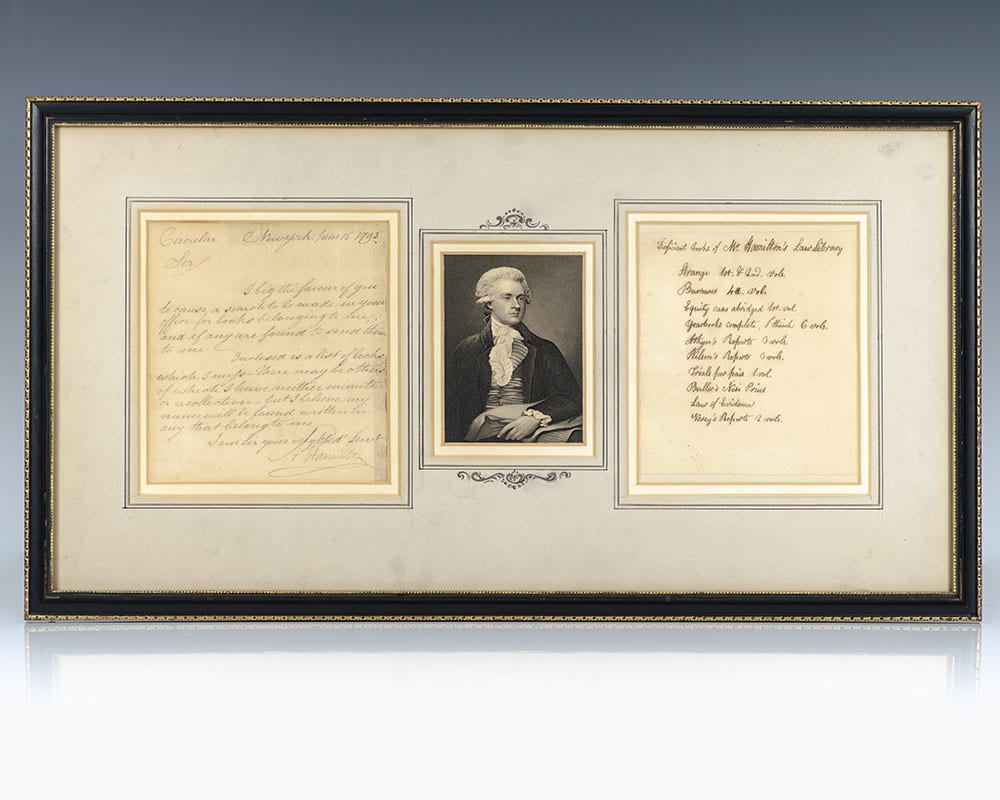 Circular Newyork June 16 1795
Sir
I beg the favour of you
to cause a search to be made in your
office for books belonging to me,
and if any are found to send them
to me
Inclosed is a list of books
which I miss - There may be others
of which I have neither minute
or recollection - but I believe my
name will be found written in
any that belong to me
I am Sir your Obedt Servt
A Hamilton
Deficient Books of Mr. Hamilton's Law Library
Strange 1st. & 2nd. vols.
Burrows 4th. Vol.
Equity cases abridged 1st. vol.
Yearbooks complete, I think 6 vols.
Atkyn's Reports 3 vols.
Wilson's Reports 3 vols.
Trials per pais 1 vol.
Buller's Nisi Prius
Law of Evidence
Vesey's Reports 2 vols.